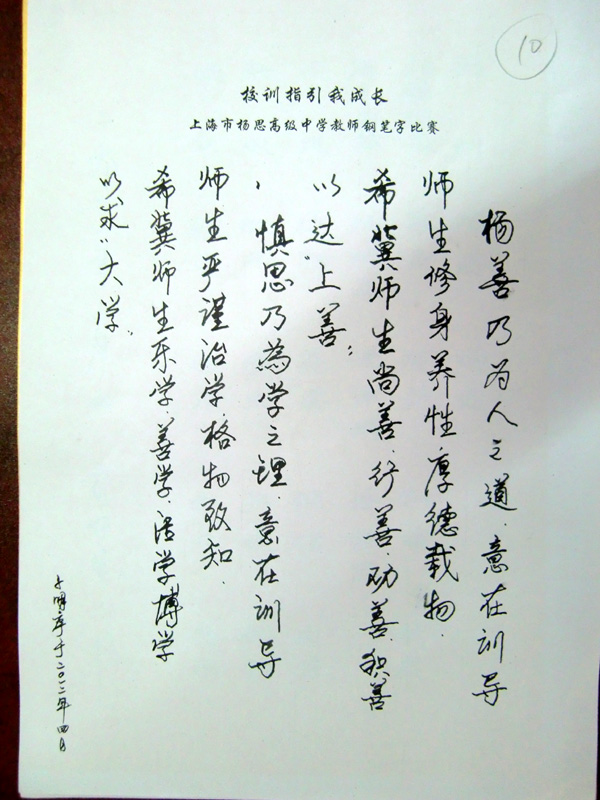 10
校训指引我成长
上海市杨思高级中学教师钢笔字比赛
杨善乃为人之道.意在训导
师生修身养性.厚德载物.
希冀师生尚善.行善.劝善.积善
以达“上善”；
慎思乃為学之理.意在训导
师生严谨治学.格物致知.
希冀师生乐学.善学.活学.博学
以求“大学”.
于二〇一二年四月